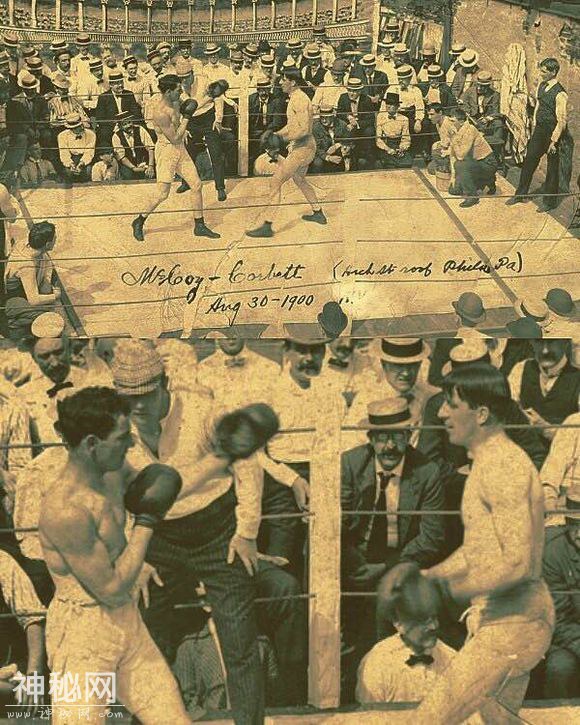 McCoy - Corbett (Arch St roof Phila Pa)
Aug 30 - 1900
神秘网